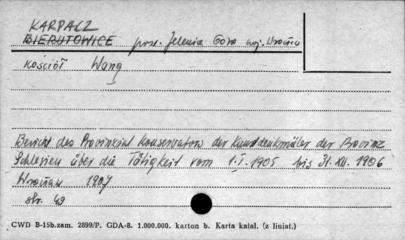 KARPACZ
BIERUTOWICE pow. Jelenia Góra woj. Wrocław
Kościół Wang
Bericht des Provinzial Konservators der Kunstdenkmäler der Provinz
Schlesien über die Tätigkeit vom 1.I.1905 bis 31.XII.1906
Wrocław 1907
str. 49
CWD B-15b.zam. 2899/P. GDA-8. 1.000.000. karton b. Karta katal. (z liniat.)